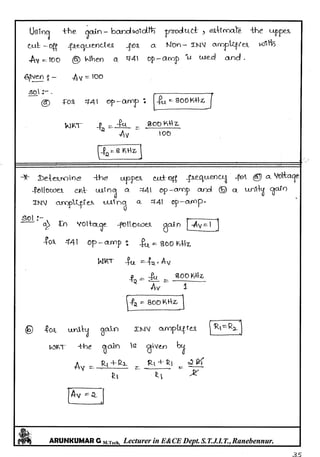 Using the gain - bandwidth product, estimate the upper
cut-off frequencies for a Non-INV amplifier with
Av = 100 ⓐ When a 741 op-amp is used and.
Given :- Av = 100
Sol:-
ⓐ For 741 op-amp : fu = 800 KHz
WKT f2 = fu / Av = 800 KHz / 100
f2 = 8 KHz
* Determine the upper cut off frequency for ⓐ a Voltage
follower ckt using a 741 op-amp and ⓑ a unity gain
INV amplifier using a 741 op-amp.
Sol:-
a) In voltage follower gain Av = 1
for 741 op-amp : fu = 800 KHz
WKT fu = f2 . Av
f2 = fu / Av = 800 KHz / 1
f2 = 800 KHz
ⓑ for unity gain INV amplifier R1 = R2
WKT the gain is given by
Av = R1 + R2 / R1 = R1 + R1 / R1 = 2 R1 / R1
Av = 2
ARUNKUMAR G M.Tech, Lecturer in E&CE Dept. S.T.J.I.T., Ranebennur.
35